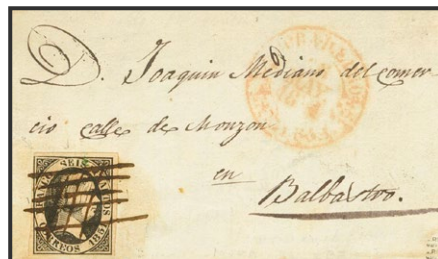 D. Joaquin Mediano del comer
cio calle de Monzon
en
Balbastro.
SEIS
CORREOS 1851